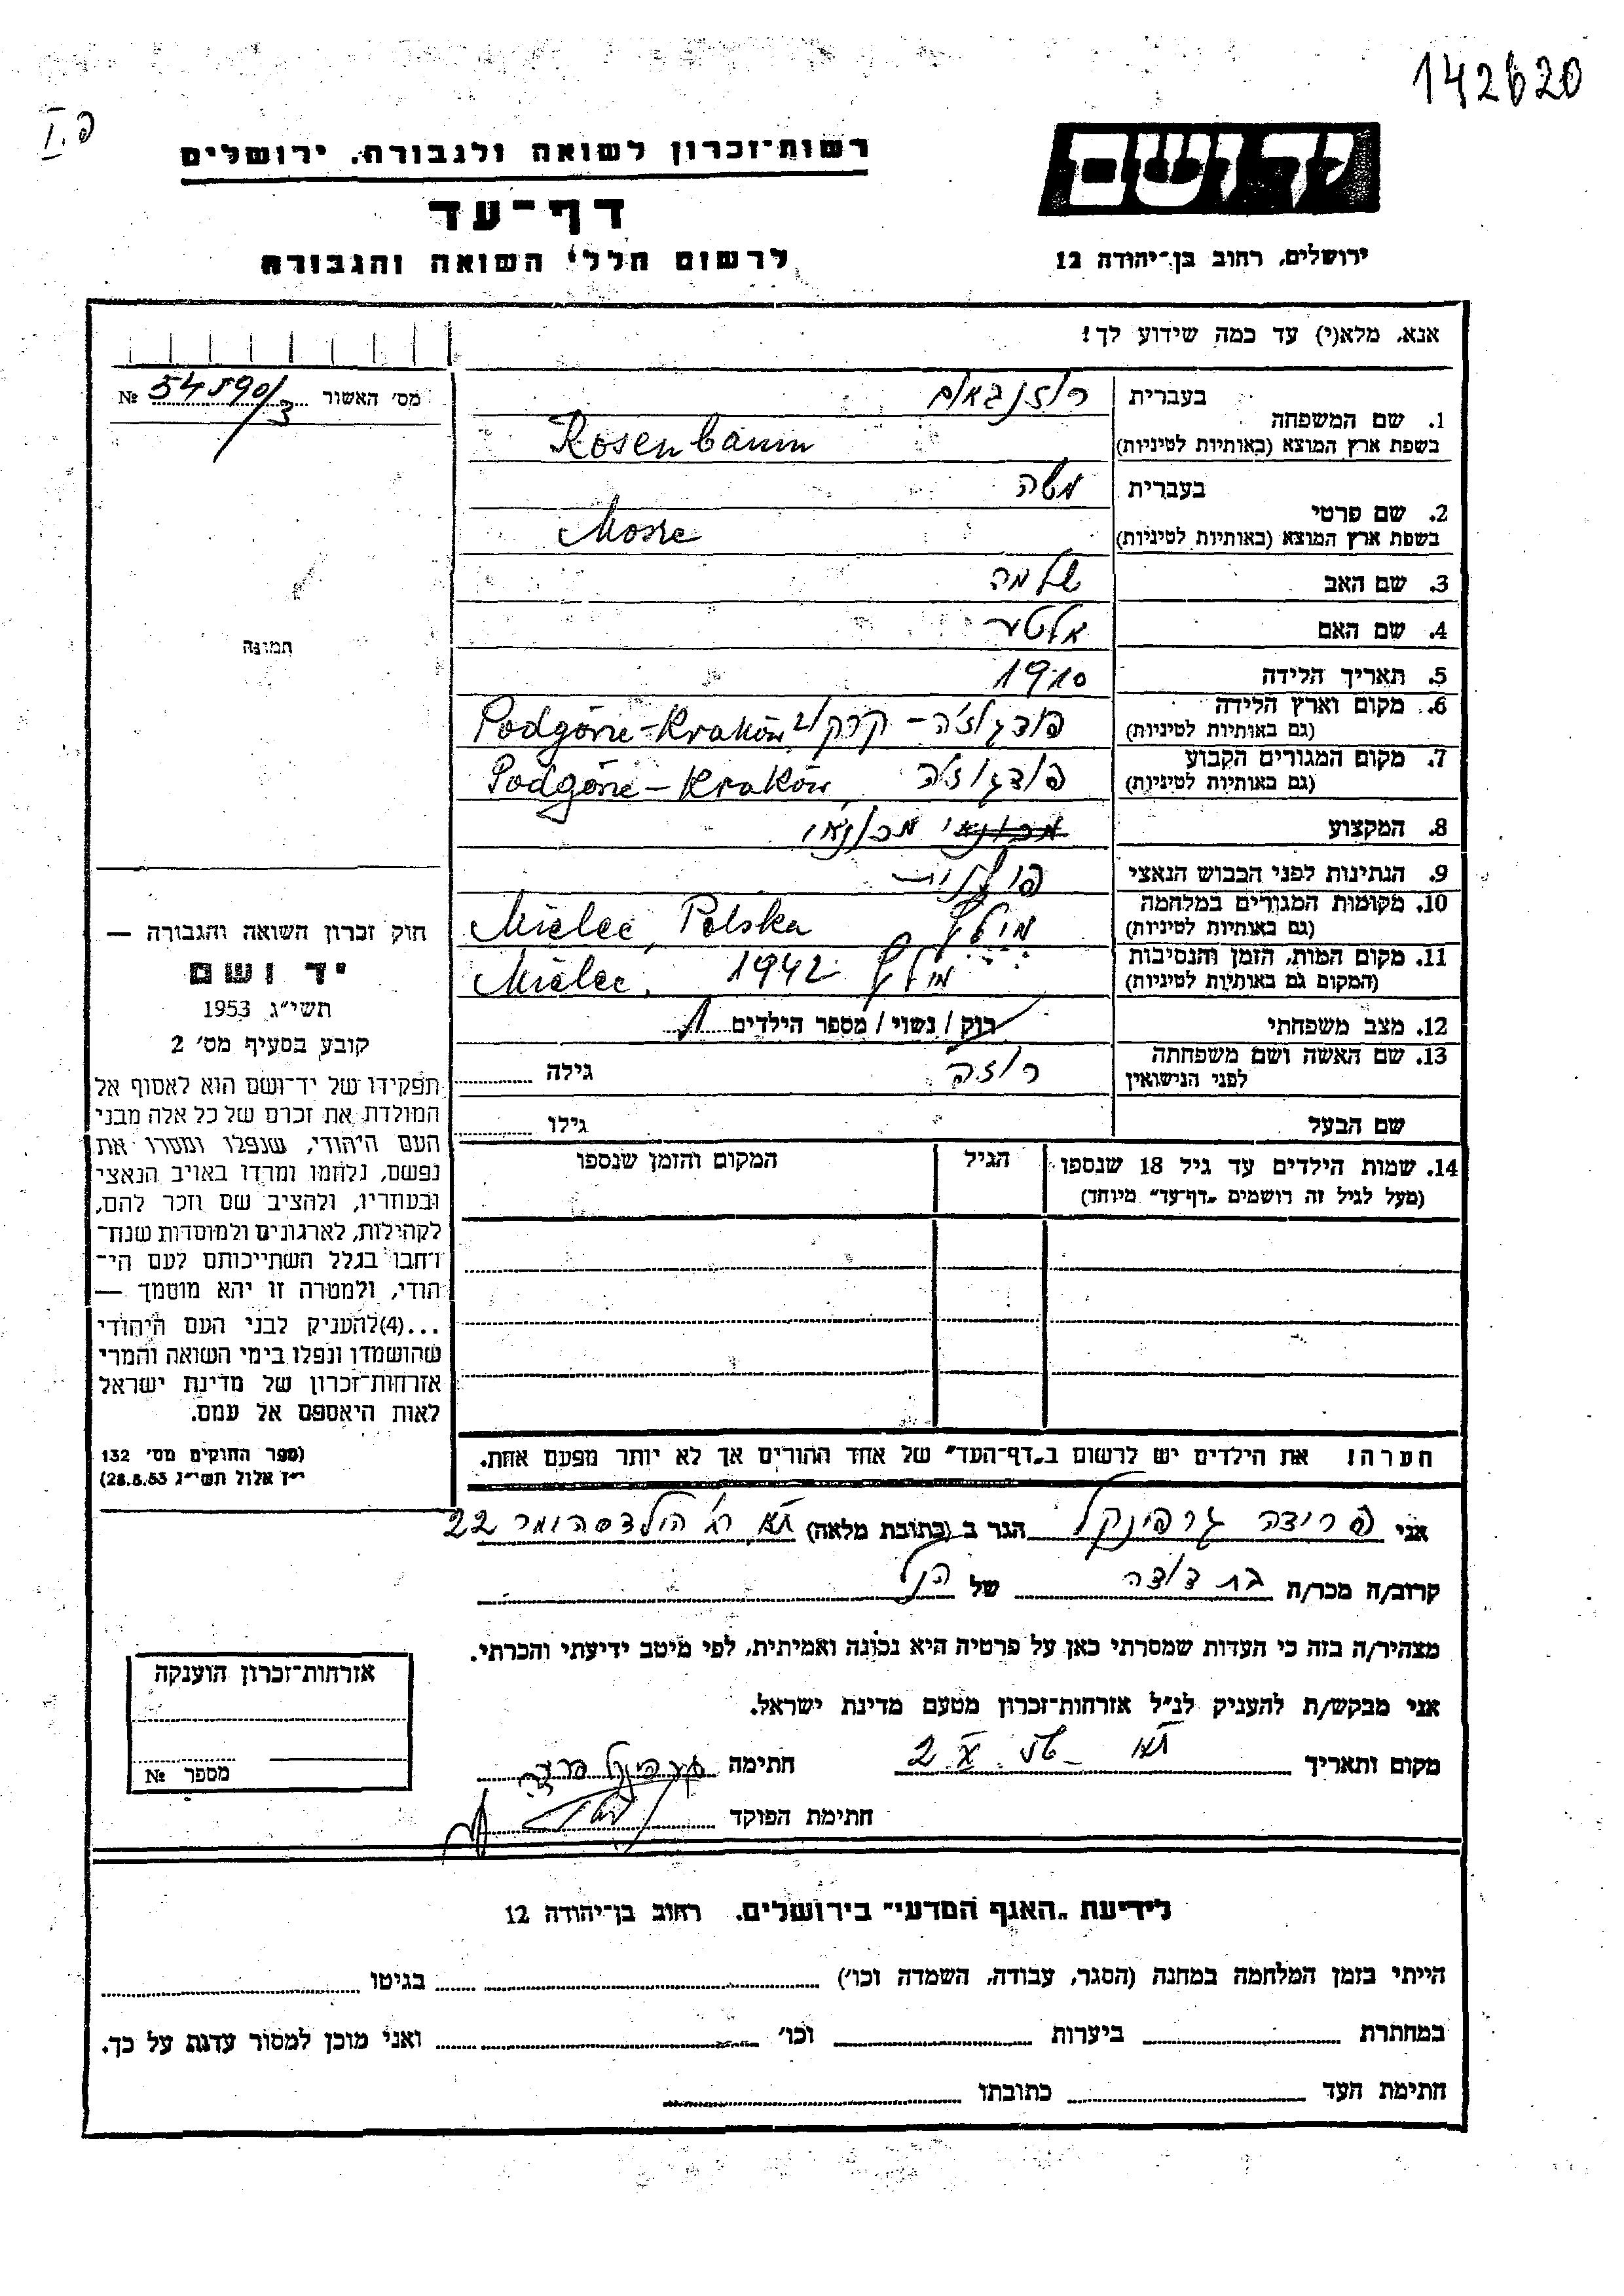 142620
פ.I
יד ושם
רשות־זכרון לשואה ולגבורה, ירושלים
דף־עד
ירושלים, רחוב בן־יהודה 12
לרשום חללי השואה והגבורה
אנא, מלא(י) עד כמה שידוע לך!
מס׳ האשור № 54590/3
1. שם המשפחה בעברית רוזנבאום
בשפת ארץ המוצא (באותיות לטיניות) Rosenbaum
2. שם פרטי בעברית משה
בשפת ארץ המוצא (באותיות לטיניות) Mosze
3. שם האב שלמה
4. שם האם
5. תאריך הלידה 1910
6. מקום וארץ הלידה (גם באותיות לטיניות) פודגוז׳ה - קרקוב Podgórze-Kraków
7. מקום המגורים הקבוע (גם באותיות לטיניות) פודגוז׳ה Podgórze - Kraków
8. המקצוע מכונאי מכונאי
9. הנתינות לפני הכבוש הנאצי פולנית
10. מקומות המגורים במלחמה (גם באותיות לטיניות) מילץ Mielec, Polska
11. מקום המות, הזמן והנסיבות (המקום גם באותיות לטיניות) מילץ 1942 Mielec,
12. מצב משפחתי רוק / נשוי / מספר הילדים 1
13. שם האשה ושם משפחתה לפני הנישואין רוזה גילה
שם הבעל גילו
14. שמות הילדים עד גיל 18 שנספו
(מעל לגיל זה רושמים „דף־עד” מיוחד)
הגיל
המקום והזמן שנספו
תמונה
חוק זכרון השואה והגבורה —
יד ושם
תשי״ג 1953
קובע בסעיף מס׳ 2
תפקידו של יד־ושם הוא לאסוף אל
המולדת את זכרם של כל אלה מבני
העם היהודי, שנפלו ומסרו את
נפשם, נלחמו ומרדו באויב הנאצי
ובעוזריו, ולהציב שם וזכר להם,
לקהילות, לארגונים ולמוסדות שנח־
רבו בגלל השתייכותם לעם הי־
הודי, ולמטרה זו יהא מוסמך —
...(4)להעניק לבני העם היהודי
שהושמדו ונפלו בימי השואה והמרי
אזרחות־זכרון של מדינת ישראל
לאות היאספם אל עמם.
(ספר החוקים מס׳ 132
י״ז אלול תשי״ג 28.8.53)
הערה! את הילדים יש לרשום ב„דף־העד” של אחד ההורים אך לא יותר מפעם אחת.
אני פרידה גרפינקל הגר ב (כתובת מלאה) ת״א רח׳ הילדסהומר 22
קרוב/ה מכר/ה בת דודה של הנ״ל
מצהיר/ה בזה כי העדות שמסרתי כאן על פרטיה היא נכונה ואמיתית, לפי מיטב ידיעתי והכרתי.
אני מבקש/ת להעניק לנ״ל אזרחות־זכרון מטעם מדינת ישראל.
מקום ותאריך ת״א 2.X. חתימה
חתימת הפוקד
אזרחות־זכרון הוענקה
מספר №
לידיעת „האגף המדעי” בירושלים, רחוב בן־יהודה 12
הייתי בזמן המלחמה במחנה (הסגר, עבודה, השמדה וכו׳) בגיטו
במחתרת ביערות וכו׳ ואני מוכן למסור עדות על כך.
חתימת העד כתובתו